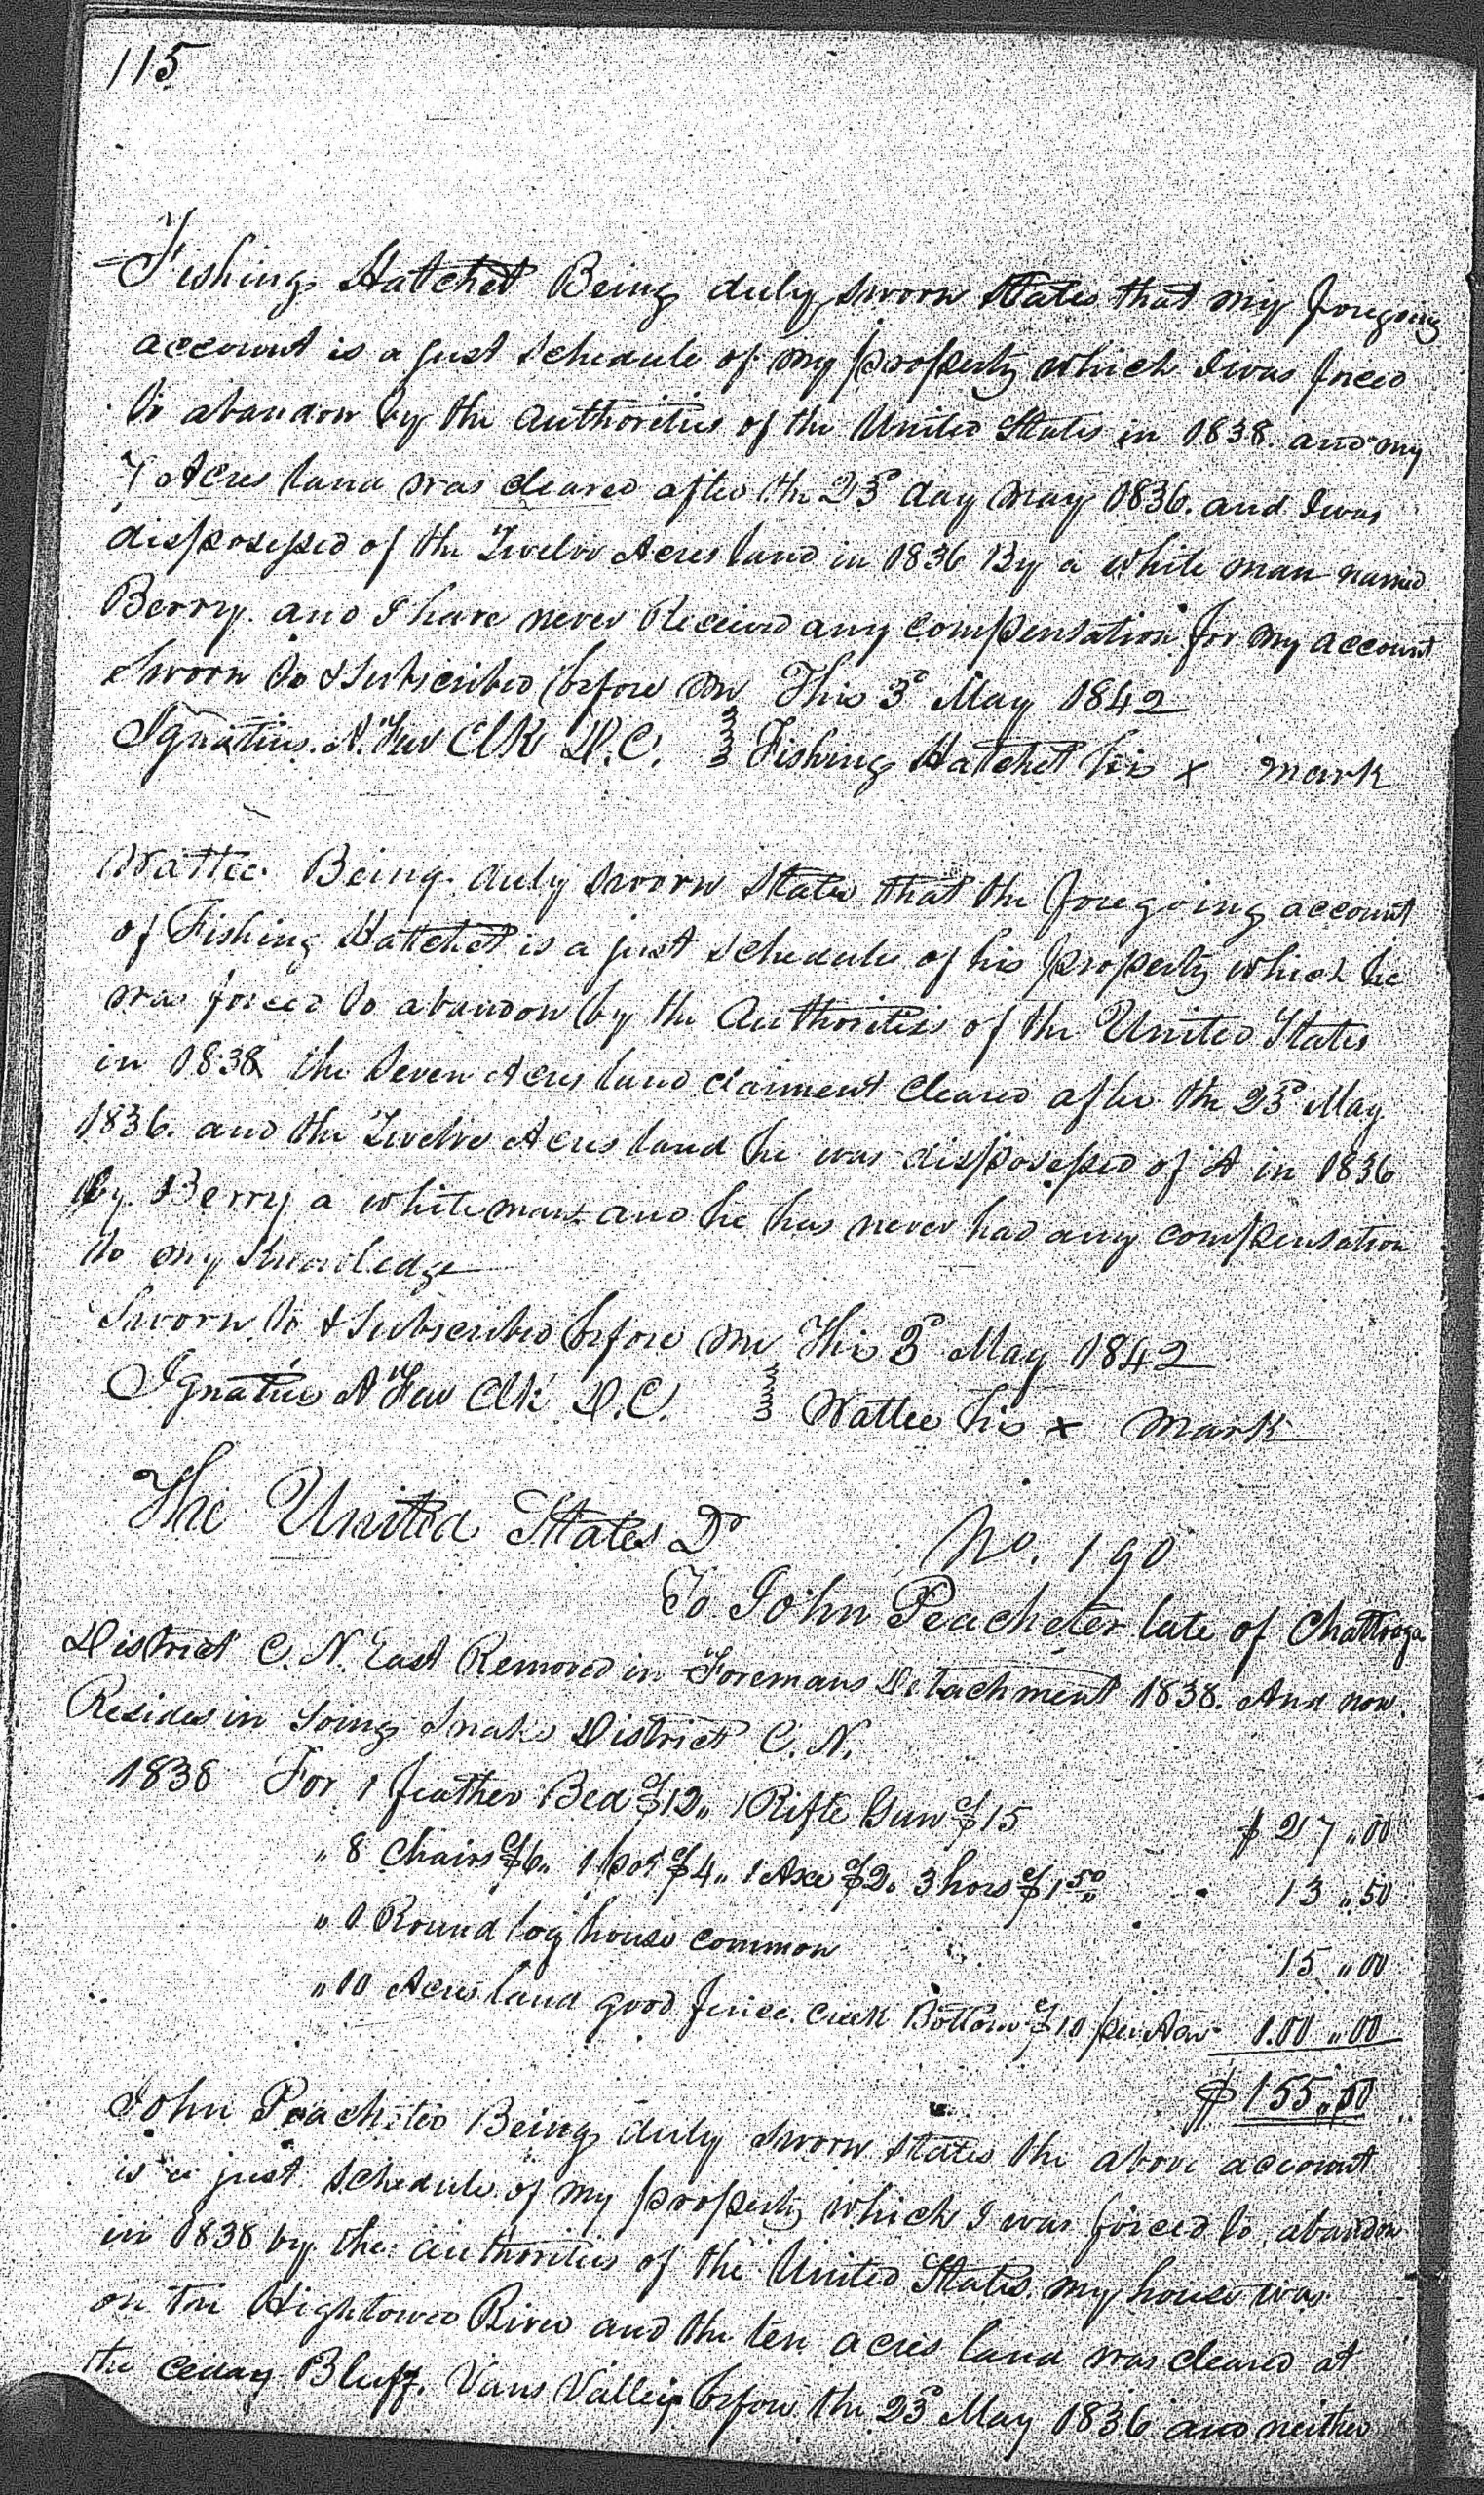 115
Fishing Hatchet Being duly sworn States that my foregoing
account is a just schedule of my property which I was forced
to abandon by the authorities of the United States in 1838. and my
7 Acres land was cleared after the 23d day May 1836. and I was
dispossessed of the Twelve Acres land in 1836 By a white man named
Berry. and I have never Received any compensation for my account
Sworn to & Subscribed before me This 3d May 1842
Ignatius. A. Few Clk D.C. } Fishing Hatchet his x mark
Wattee. Being duly sworn States that the foregoing account
of Fishing Hatchet is a just schedule of his property which he
was forced to abandon by the Authorities of the United States
in 1838 the Seven Acres land claiment cleared after the 23d May
1836. and the Twelve Acres land he was dispossessed of it in 1836
by Berry a white man and he has never had any compensation
to my Knowledge
Sworn to & Subscribed before me This 3d May 1842
Ignatius A Few Clk D.C. } Wattee his x mark
The United States Dr No. 190
To John Peacheter late of Chattooga
District C. N. East Removed in Foremans Detachment 1838. And now
Resides in Going Snake District C. N.
1838 For 1 feather Bed $12,, 1 Rifle Gun $15 $27,,00
,, 8 Chairs $6,, 1 pot $4,, 1 Axe $2. 3 hoes $1 50 13,,50
,, 1 Round log house common 15,,00
,, 10 Acres land good fence creek Bottom $10 per Acre 1.00,,00
$155,,50
John Peacheter Being duly sworn states the above account
is a just schedule of my property which I was forced to abandon
in 1838 by the authorities of the United States. my house was
on the Hightower River and the ten acres land was cleared at
the Cedar Bluff. Vans Valley before the 23d May 1836 and neither